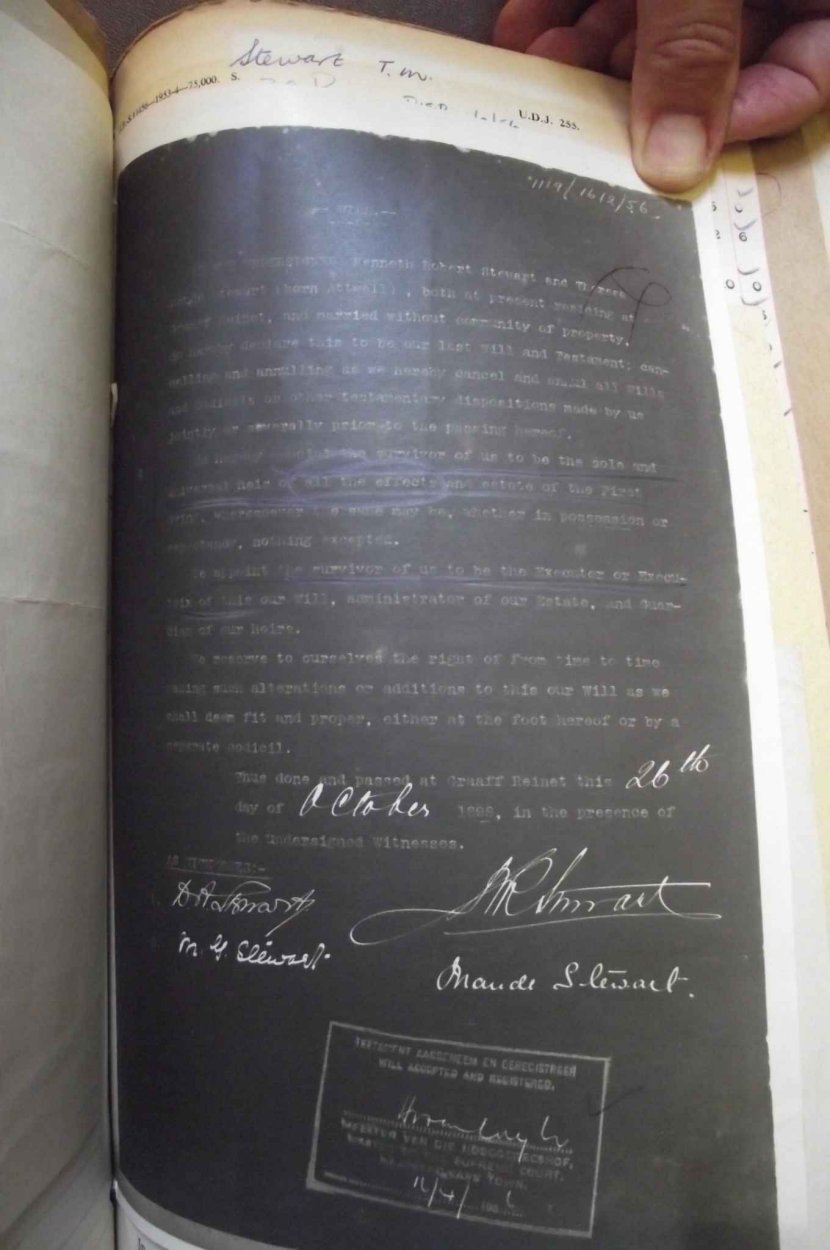 Stewart T.M.
1953-4—75,000. S.
U.D.J. 255.
1119/1618/56
Kenneth Robert Stewart and Theresa
Stewart (born Attwell), both at present residing at
Reinet, and married without community of property,
do hereby declare this to be our last Will and Testament; can-
celling and annulling as we hereby cancel and annul all Wills
and Codicils or other testamentary dispositions made by us
jointly or severally prior to the passing hereof.
hereby appoint the survivor of us to be the sole and
universal heir of all the effects and estate of the First
wheresoever the same may be, whether in possession or
expectancy, nothing excepted.
We appoint the survivor of us to be the Executor or Execu-
trix of this our Will, administrator of our Estate, and Guar-
dian of our heirs.
We reserve to ourselves the right of from time to time
making such alterations or additions to this our Will as we
shall deem fit and proper, either at the foot hereof or by a
separate codicil.
Thus done and passed at Graaff Reinet this 26th
day of October 1898, in the presence of
the undersigned Witnesses.
AS WITNESSES:-
D A Stewart
M. G. Stewart
K R Stewart
Maude Stewart.
TESTAMENT AANGENEEM EN GEREGISTREER
WILL ACCEPTED AND REGISTERED.
MEESTER VAN DIE HOOGGEREGSHOF,
MASTER OF THE SUPREME COURT,
11/4/